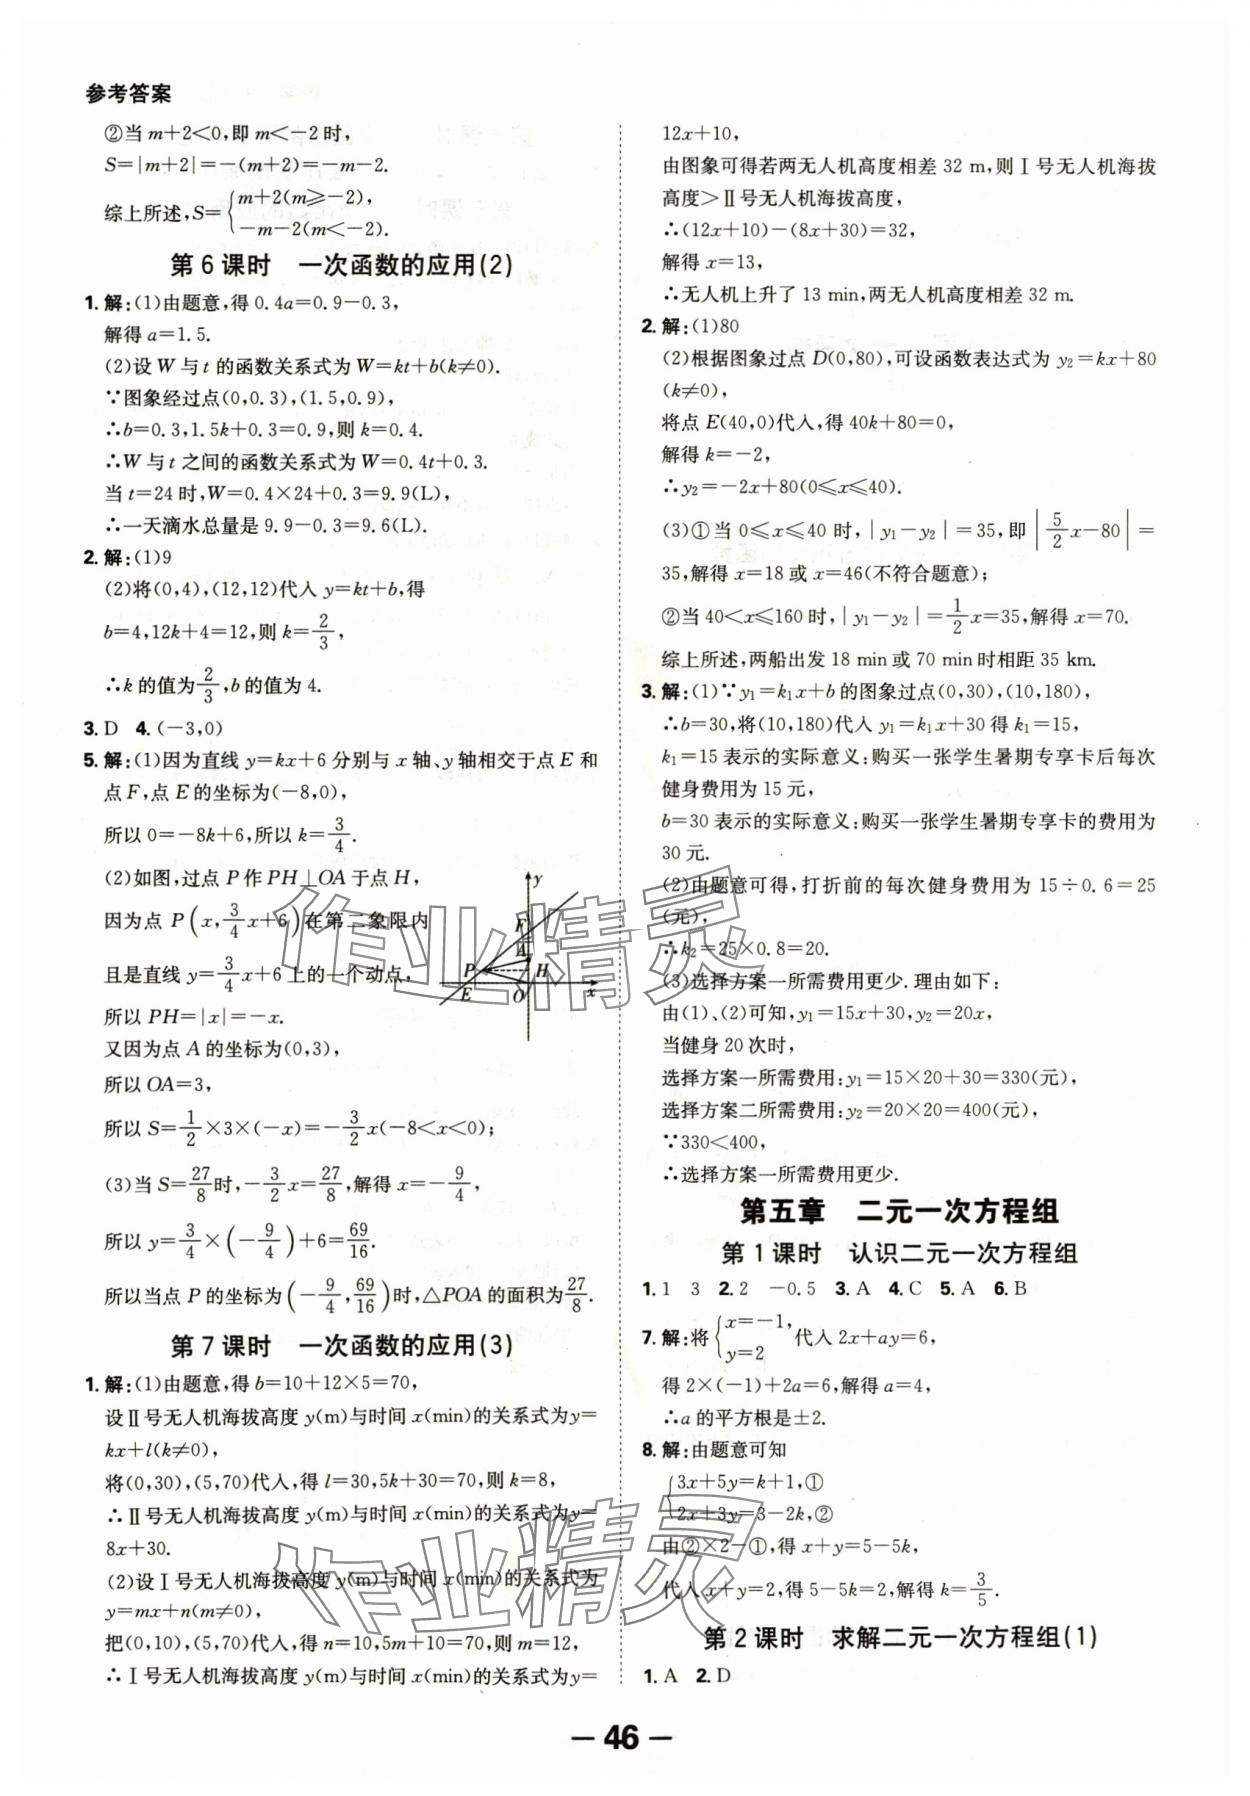 参考答案
②当 m+2<0,即 m<-2 时,
S=|m+2|=-(m+2)=-m-2.
综上所述,S={m+2(m≥-2),
-m-2(m<-2).
第 6 课时 一次函数的应用(2)
1.解:(1)由题意,得 0.4a=0.9-0.3,
解得 a=1.5.
(2)设 W 与 t 的函数关系式为 W=kt+b(k≠0).
∵图象经过点(0,0.3),(1.5,0.9),
∴b=0.3,1.5k+0.3=0.9,则 k=0.4.
∴W 与 t 之间的函数关系式为 W=0.4t+0.3.
当 t=24 时,W=0.4×24+0.3=9.9(L),
∴一天滴水总量是 9.9-0.3=9.6(L).
2.解:(1)9
(2)将(0,4),(12,12)代入 y=kt+b,得
b=4,12k+4=12,则 k=2/3,
∴k 的值为2/3,b 的值为 4.
3.D 4.(-3,0)
5.解:(1)因为直线 y=kx+6 分别与 x 轴、y 轴相交于点 E 和
点 F,点 E 的坐标为(-8,0),
所以 0=-8k+6,所以 k=3/4.
(2)如图,过点 P 作 PH⊥OA 于点 H,
因为点 P(x,3/4x+6)在第二象限内
且是直线 y=3/4x+6 上的一个动点,
所以 PH=|x|=-x.
又因为点 A 的坐标为(0,3),
所以 OA=3,
所以 S=1/2×3×(-x)=-3/2x(-8<x<0);
(3)当 S=27/8时,-3/2x=27/8,解得 x=-9/4,
所以 y=3/4×(-9/4)+6=69/16.
所以当点 P 的坐标为(-9/4,69/16)时,△POA 的面积为27/8.
y
F
A
P
H
E
O
x
第 7 课时 一次函数的应用(3)
1.解:(1)由题意,得 b=10+12×5=70,
设Ⅱ号无人机海拔高度 y(m)与时间 x(min)的关系式为 y=
kx+l(k≠0),
将(0,30),(5,70)代入,得 l=30,5k+30=70,则 k=8,
∴Ⅱ号无人机海拔高度 y(m)与时间 x(min)的关系式为 y=
8x+30.
(2)设Ⅰ号无人机海拔高度 y(m)与时间 x(min)的关系式为
y=mx+n(m≠0),
把(0,10),(5,70)代入,得 n=10,5m+10=70,则 m=12,
∴Ⅰ号无人机海拔高度 y(m)与时间 x(min)的关系式为 y=
12x+10,
由图象可得若两无人机高度相差 32 m,则Ⅰ号无人机海拔
高度>Ⅱ号无人机海拔高度,
∴(12x+10)-(8x+30)=32,
解得 x=13,
∴无人机上升了 13 min,两无人机高度相差 32 m.
2.解:(1)80
(2)根据图象过点 D(0,80),可设函数表达式为 y₂=kx+80
(k≠0),
将点 E(40,0)代入,得 40k+80=0,
解得 k=-2,
∴y₂=-2x+80(0≤x≤40).
(3)①当 0≤x≤40 时,|y₁-y₂|=35,即|5/2x-80|=
35,解得 x=18 或 x=46(不符合题意);
②当 40<x≤160 时,|y₁-y₂|=1/2x=35,解得 x=70.
综上所述,两船出发 18 min 或 70 min 时相距 35 km.
3.解:(1)∵y₁=k₁x+b 的图象过点(0,30),(10,180),
∴b=30,将(10,180)代入 y₁=k₁x+30 得 k₁=15,
k₁=15 表示的实际意义:购买一张学生暑期专享卡后每次
健身费用为 15 元,
b=30 表示的实际意义:购买一张学生暑期专享卡的费用为
30 元.
(2)由题意可得,打折前的每次健身费用为 15÷0.6=25
(元),
∴k₂=25×0.8=20.
(3)选择方案一所需费用更少.理由如下:
由(1)、(2)可知,y₁=15x+30,y₂=20x,
当健身 20 次时,
选择方案一所需费用:y₁=15×20+30=330(元),
选择方案二所需费用:y₂=20×20=400(元),
∵330<400,
∴选择方案一所需费用更少.
第五章 二元一次方程组
第 1 课时 认识二元一次方程组
1.1 3 2.2 -0.5 3.A 4.C 5.A 6.B
7.解:将{x=-1,
y=2 代入 2x+ay=6,
得 2×(-1)+2a=6,解得 a=4,
∴a 的平方根是±2.
8.解:由题意可知
{3x+5y=k+1,①
2x+3y=3-2k,②
由②×2-①,得 x+y=5-5k,
代入 x+y=2,得 5-5k=2,解得 k=3/5.
第 2 课时 求解二元一次方程组(1)
1.A 2.D
— 46 —
作业精灵
作业精灵